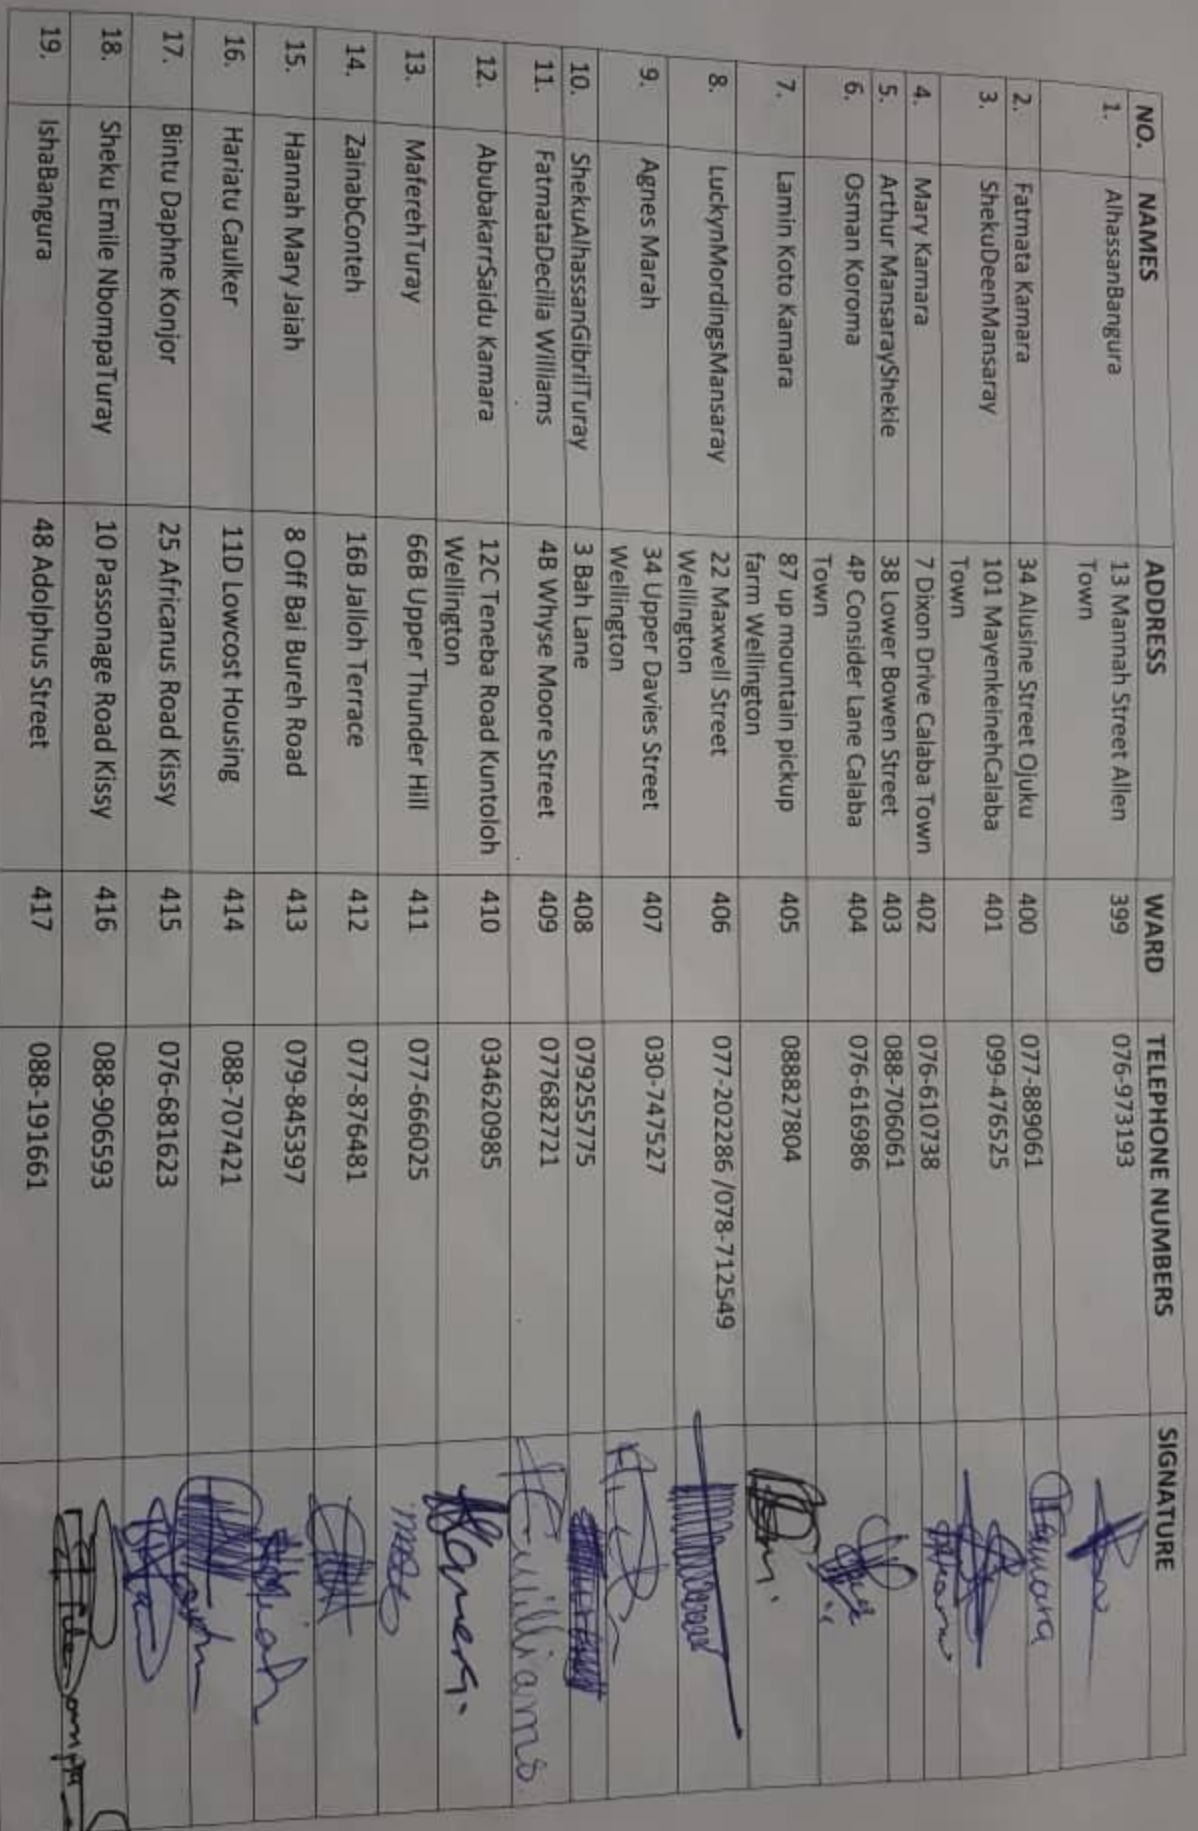 NO. NAMES ADDRESS WARD TELEPHONE NUMBERS SIGNATURE
1. AlhassanBangura 13 Mannah Street Allen 399 076-973193
Town
2. Fatmata Kamara 34 Alusine Street Ojuku 400 077-889061 Kamara
3. ShekuDeenMansaray 101 MayenkeinehCalaba 401 099-476525
Town
4. Mary Kamara 7 Dixon Drive Calaba Town 402 076-610738
5. Arthur MansarayShekie 38 Lower Bowen Street 403 088-706061
6. Osman Koroma 4P Consider Lane Calaba 404 076-616986
Town
7. Lamin Koto Kamara 87 up mountain pickup 405 088827804
farm Wellington
8. LuckynMordingsMansaray 22 Maxwell Street 406 077-202286 /078-712549
Wellington
9. Agnes Marah 34 Upper Davies Street 407 030-747527
Wellington
10. ShekuAlhassanGibrilTuray 3 Bah Lane 408 079255775
11. FatmataDecilia Williams 4B Whyse Moore Street 409 077682721 Williams
12. AbubakarrSaidu Kamara 12C Teneba Road Kuntoloh 410 034620985
Wellington
13. MaferehTuray 66B Upper Thunder Hill 411 077-666025
14. ZainabConteh 16B Jalloh Terrace 412 077-876481
15. Hannah Mary Jaiah 8 Off Bai Bureh Road 413 079-845397
16. Hariatu Caulker 11D Lowcost Housing 414 088-707421
17. Bintu Daphne Konjor 25 Africanus Road Kissy 415 076-681623
18. Sheku Emile NbompaTuray 10 Passonage Road Kissy 416 088-906593
19. IshaBangura 48 Adolphus Street 417 088-191661